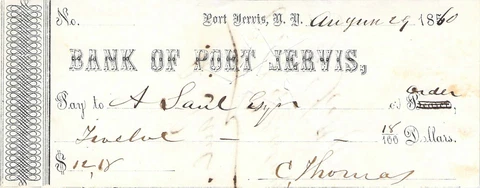 No. Port Jervis, N. Y. August 29 1860
BANK OF PORT JERVIS,
Pay to A Saul Esqr or order
Twelve — — 18/100 Dollars.
$ 12,18 C Thomas